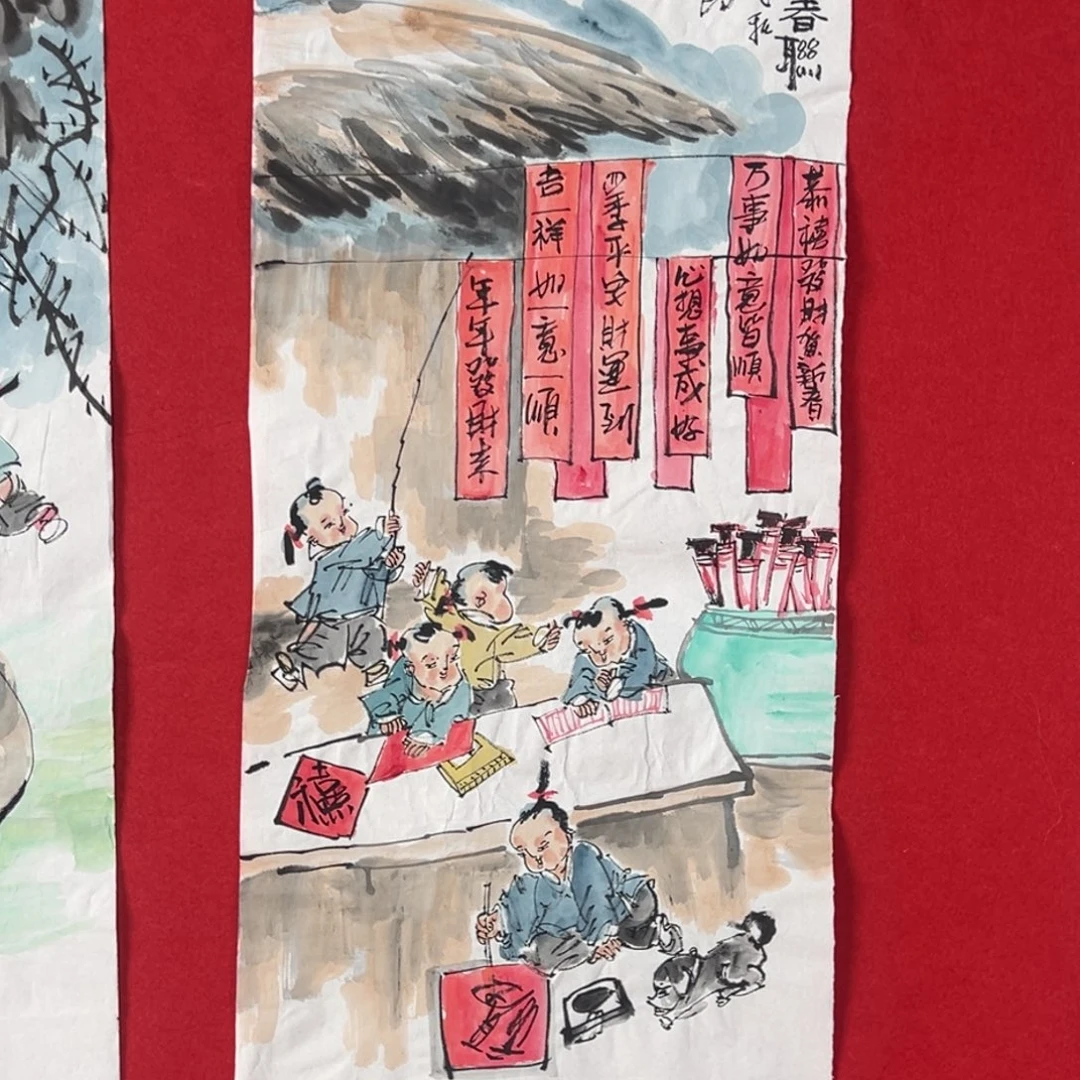 春聯
恭禧發財賀新春
万事如意皆順
心想事成好
四季平安財運到
吉祥如意順
年年發財来
禧